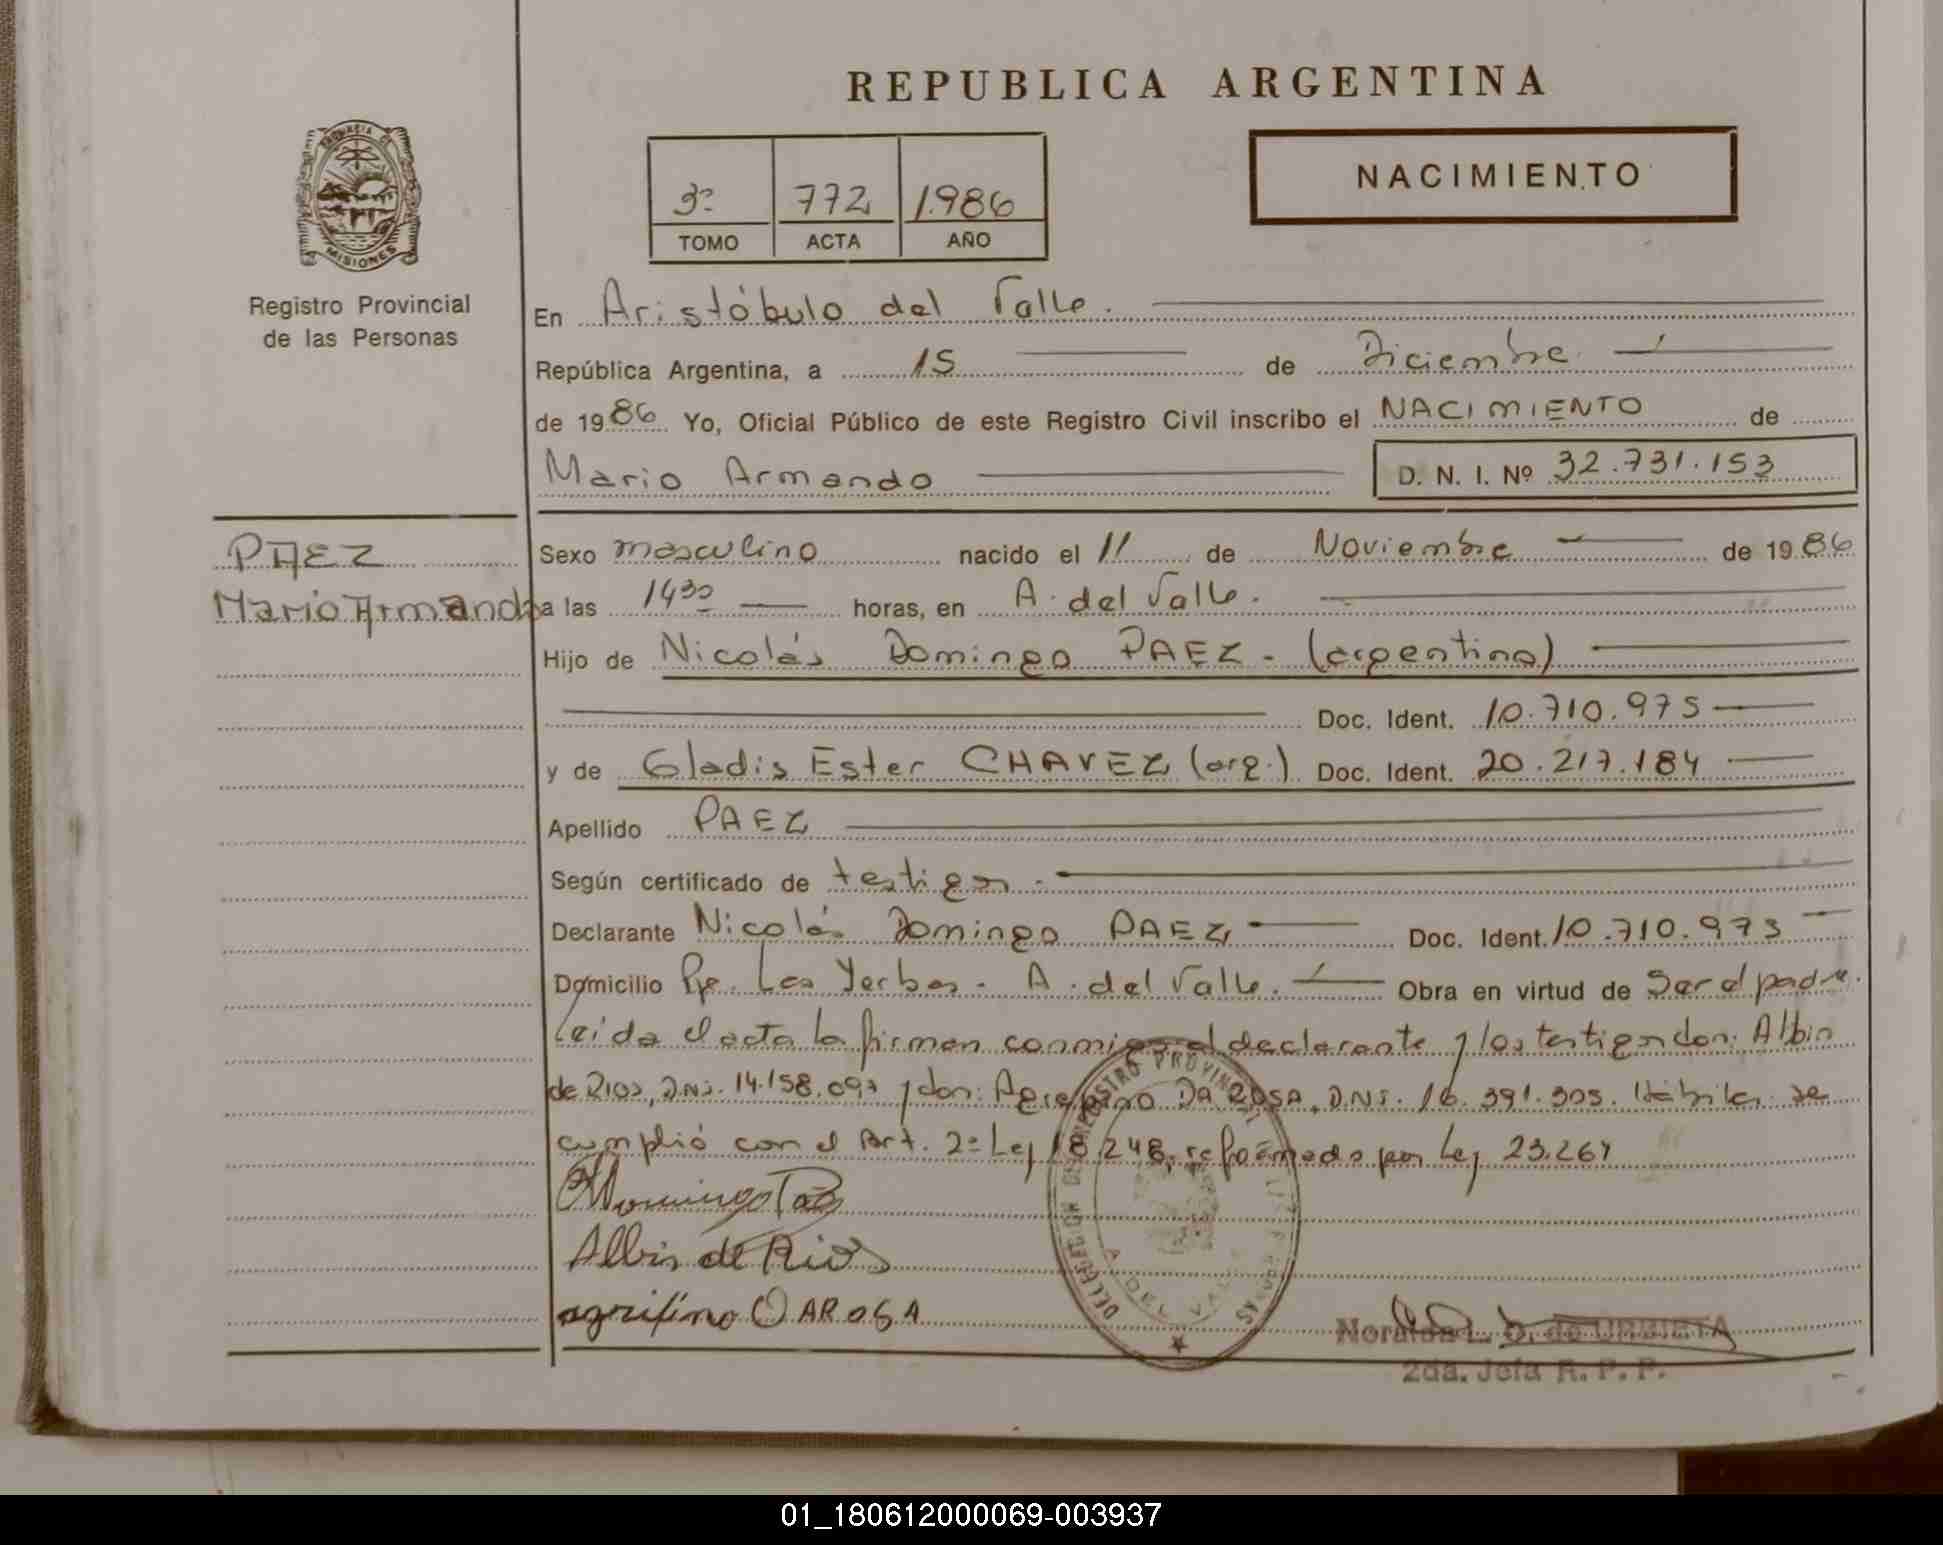 REPUBLICA ARGENTINA
PROVINCIA DE
MISIONES
Registro Provincial
de las Personas
3º 772 1.986
TOMO ACTA AÑO
NACIMIENTO
En Aristóbulo del Valle.
República Argentina, a 15 de Diciembre.
de 1986 Yo, Oficial Público de este Registro Civil inscribo el NACIMIENTO de
Mario Armando D. N. I. Nº 32.731.153
PAEZ
Mario Armando
Sexo masculino nacido el 11 de Noviembre de 1986
a las 14³⁰ horas, en A. del Valle.
Hijo de Nicolás Domingo PAEZ - (argentino)
Doc. Ident. 10.710.975
y de Gladis Ester CHAVEZ (arg.) Doc. Ident. 20.217.184
Apellido PAEZ
Según certificado de testigos.
Declarante Nicolás Domingo PAEZ Doc. Ident. 10.710.973
Domicilio Pje. Las Yerbas. A. del Valle. Obra en virtud de Ser el padre.
Leída el acta la firman conmigo el declarante y los testigos don: Albin
de RIOS, D.N.I. 14.158.093 y don: Agrefino DA ROSA, D.N.I. 16.391.305. Hábiles. se
cumplió con el Art. 2º Ley 18.248, reformado por Ley 23.264
Domingo Paez
Albin de Rios
agrifino DAROSA
REGISTRO PROVINCIAL
A. DEL VALLE
Noralda L. D. de URBIETA
2da. Jefa R. P. P.
01_180612000069-003937